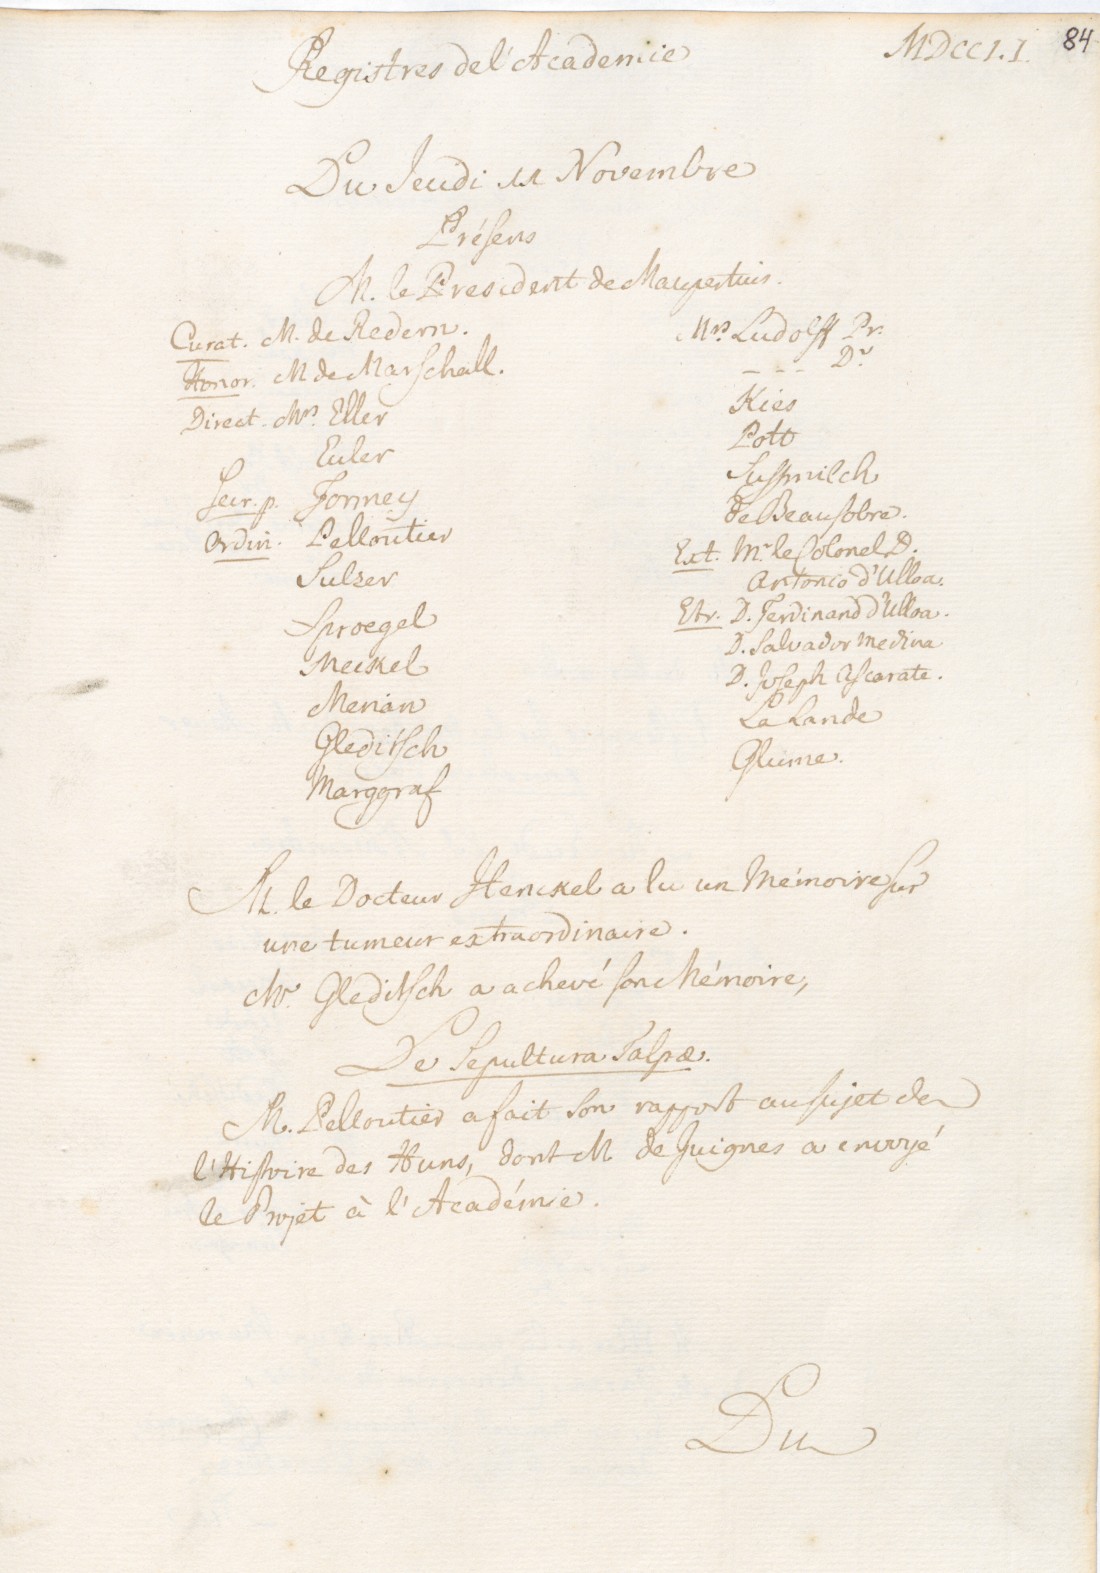 Registres de l'Academie
MDCCLI.
84
Du Jeudi 11 Novembre
Présens
M. le President de Maupertuis.
Curat. M. de Redern.
Honor. M de Marschall.
Direct. Mrs. Eller
Euler
Secr. p. Formey
Ordin. Pelloutier
Sulzer
Sproegel
Meckel
Merian
Gleditsch
Marggraf
Mrs. Ludolff Pr.
- - - Dr.
Kies
Pott
Sussmilch
de Beausobre.
Ext. Mr. le Colonel D.
Antonio d'Ulloa.
Etr. D. Ferdinand d'Ulloa.
D. Salvador Medina
D. Joseph Ascarate.
La Lande
Glume.
M. le Docteur Henckel a lu un Mémoire sur
une tumeur extraordinaire.
Mr. Gleditsch a achevé son Mémoire,
De Sepultura Talpæ.
M. Pelloutier a fait son rapport au sujet de
l'Histoire des Huns, dont M de Guignes a envoyé
le Projet à l'Académie.
Du